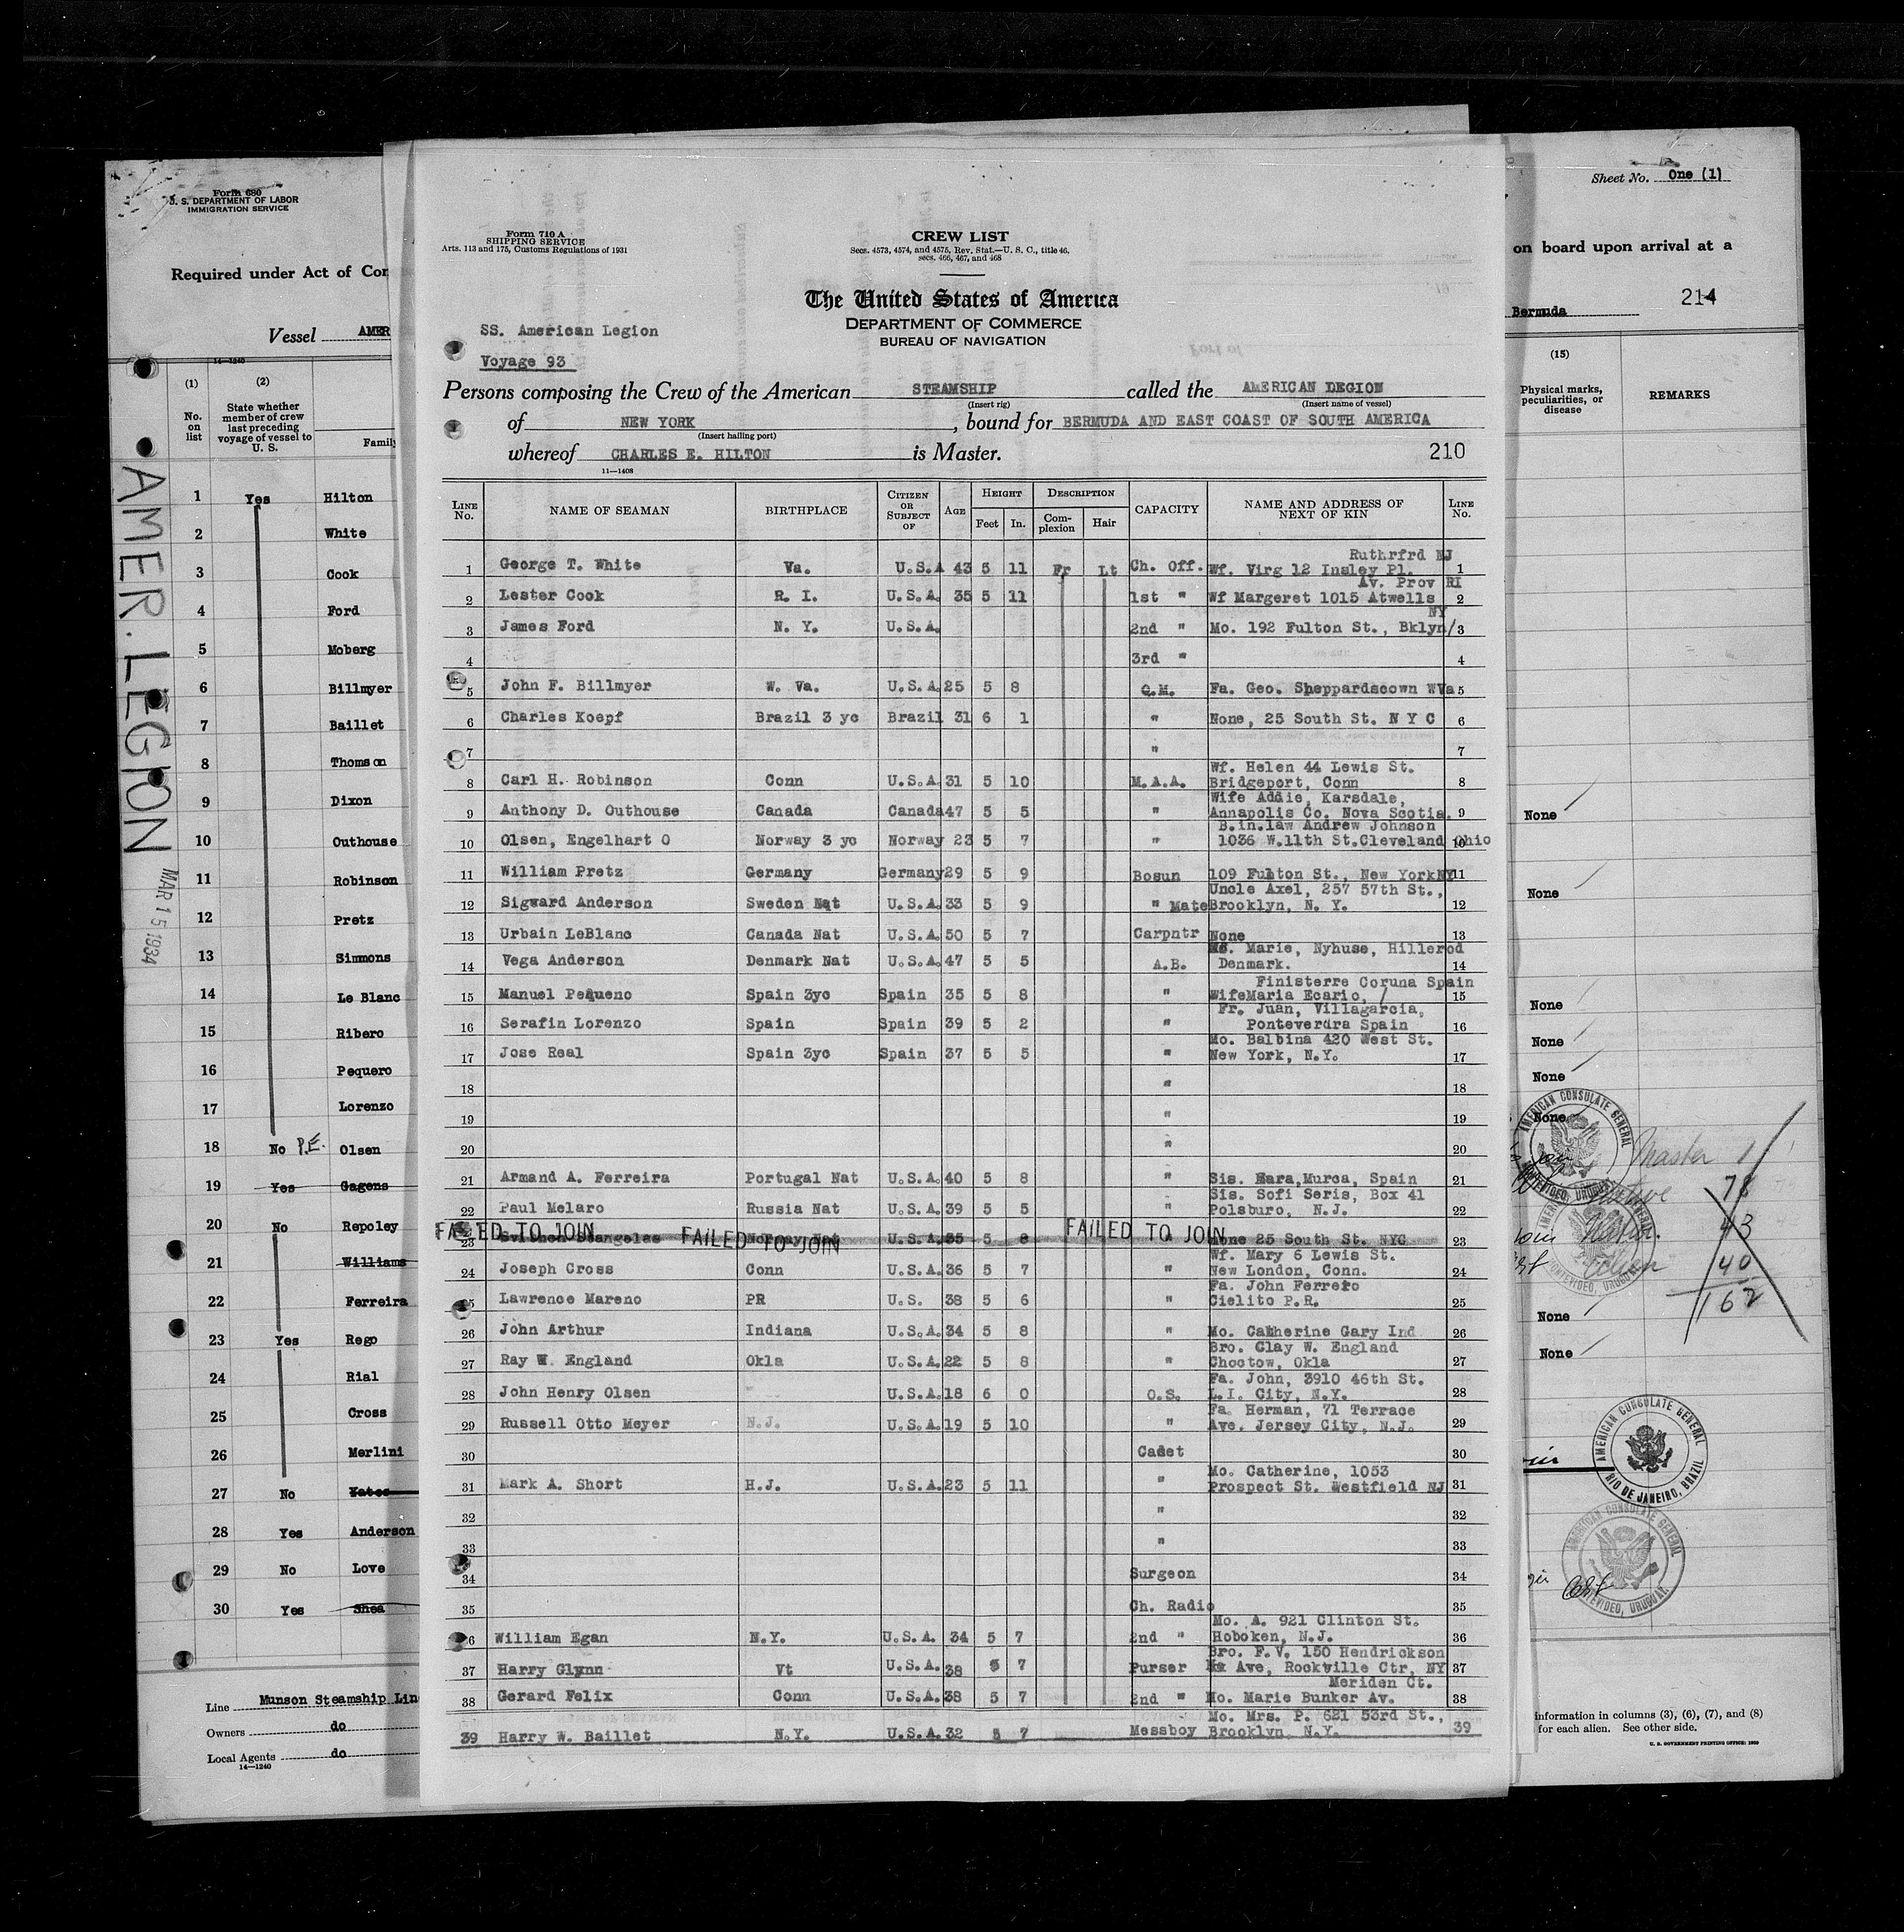 Form 680
U. S. DEPARTMENT OF LABOR
IMMIGRATION SERVICE
Required under Act of Con
Vessel AMER
14—1240
(1) (2)
No. on list
State whether member of crew last preceding voyage of vessel to U. S.
Family
AMER. LEGION
MAR 15 1934
1 Yes Hilton
2 White
3 Cook
4 Ford
5 Moberg
6 Billmyer
7 Baillet
8 Thomson
9 Dixon
10 Outhouse
11 Robinson
12 Pretz
13 Simmons
14 Le Blanc
15 Ribero
16 Pequero
17 Lorenzo
18 No P.E. Olsen
19 Yes Gagens
20 No Repoley
21 Williams
22 Ferreira
23 Yes Rego
24 Rial
25 Cross
26 Merlini
27 No Yates
28 Yes Anderson
29 No Love
30 Yes Shea
Line Munson Steamship Lin
Owners do
Local Agents do
14—1240
Form 710 A
SHIPPING SERVICE
Arts. 113 and 175, Customs Regulations of 1931
CREW LIST
Secs. 4573, 4574, and 4575, Rev. Stat.—U. S. C., title 46,
secs. 466, 467, and 468
The United States of America
DEPARTMENT OF COMMERCE
BUREAU OF NAVIGATION
SS. American Legion
Voyage 93
Persons composing the Crew of the American STEAMSHIP called the AMERICAN LEGION
(Insert rig) (Insert name of vessel)
of NEW YORK, bound for BERMUDA AND EAST COAST OF SOUTH AMERICA
(Insert hailing port)
whereof CHARLES E. HILTON is Master. 210
11—1408
LINE No. NAME OF SEAMAN BIRTHPLACE CITIZEN OR SUBJECT OF AGE HEIGHT Feet In. DESCRIPTION Complexion Hair CAPACITY NAME AND ADDRESS OF NEXT OF KIN LINE No.
Ruthrfrd NJ
1 George T. White Va. U.S.A 43 5 11 Fr Lt Ch. Off. Wf. Virg 12 Insley Pl. 1
Av. Prov RI
2 Lester Cook R. I. U.S.A. 35 5 11 1st " Wf Margeret 1015 Atwells 2
NY
3 James Ford N. Y. U.S.A. 2nd " Mo. 192 Fulton St., Bklyn/ 3
4 3rd " 4
5 John F. Billmyer W. Va. U.S.A. 25 5 8 Q.M. Fa. Geo. Sheppardscown WVa 5
6 Charles Koepf Brazil 3 yc Brazil 31 6 1 " None, 25 South St. N Y C 6
7 " 7
Wf. Helen 44 Lewis St.
8 Carl H. Robinson Conn U.S.A. 31 5 10 M.A.A. Bridgeport, Conn 8
Wife Addie, Karsdale,
9 Anthony D. Outhouse Canada Canada 47 5 5 " Annapolis Co. Nova Scotia. 9
B.in.law Andrew Johnson
10 Olsen, Engelhart O Norway 3 yc Norway 23 5 7 " 1036 W.11th St.Cleveland Ohio 10
11 William Pretz Germany Germany 29 5 9 Bosun 109 Fulton St., New York NY 11
Uncle Axel, 257 57th St.,
12 Sigward Anderson Sweden Nat U.S.A. 33 5 9 " Mate Brooklyn, N. Y. 12
13 Urbain LeBlanc Canada Nat U.S.A. 50 5 7 Carpntr None 13
Marie, Nyhuse, Hillerod
14 Vega Anderson Denmark Nat U.S.A. 47 5 5 A.B. Denmark. 14
Finisterre Coruna Spain
15 Manuel Pequeno Spain 3yc Spain 35 5 8 " WifeMaria Ecario, / 15
Fr. Juan, Villagarcia,
16 Serafin Lorenzo Spain Spain 39 5 2 " Ponteverdra Spain 16
Mo. Balbina 420 West St.
17 Jose Real Spain 3yc Spain 37 5 5 " New York, N.Y. 17
18 " 18
19 " 19
20 " 20
21 Armand A. Ferreira Portugal Nat U.S.A. 40 5 8 " Sis. Sara,Murca, Spain 21
Sis. Sofi Seris, Box 41
22 Paul Melaro Russia Nat U.S.A. 39 5 5 " Polsburo, N.J. 22
FAILED TO JOIN FAILED TO JOIN FAILED TO JOIN
23 Norway Nat U.S.A. 35 5 8 None 25 South St. NYC 23
Wf. Mary 6 Lewis St.
24 Joseph Cross Conn U.S.A. 36 5 7 " New London, Conn. 24
Fa. John Ferrero
25 Lawrence Mareno PR U.S. 38 5 6 " Cielito P.R. 25
26 John Arthur Indiana U.S.A. 34 5 8 " Mo. Catherine Gary Ind 26
Bro. Clay W. England
27 Ray W. England Okla U.S.A. 22 5 8 " Choctow, Okla 27
Fa. John, 3910 46th St.
28 John Henry Olsen U.S.A. 18 6 0 O.S. L.I. City, N.Y. 28
Fa. Herman, 71 Terrace
29 Russell Otto Meyer N.J. U.S.A. 19 5 10 " Ave. Jersey City, N.J. 29
30 Cadet 30
Mo. Catherine, 1053
31 Mark A. Short H.J. U.S.A. 23 5 11 " Prospect St. Westfield NJ 31
32 " 32
33 " 33
34 Surgeon 34
35 Ch. Radio 35
Mo. A. 921 Clinton St.
36 William Egan N.Y. U.S.A. 34 5 7 2nd " Hoboken, N.J. 36
Bro. F.V. 150 Hendrickson
37 Harry Glynn Vt U.S.A. 38 5 7 Purser Ave, Rockville Ctr, NY 37
Meriden Ct.
38 Gerard Felix Conn U.S.A. 38 5 7 2nd " Mo. Marie Bunker Av. 38
Mo. Mrs. P. 621 53rd St.,
39 Harry W. Baillet N.Y. U.S.A. 32 5 7 Messboy Brooklyn, N.Y. 39
Sheet No. One (1)
on board upon arrival at a
214
Bermuda
(15)
Physical marks, peculiarities, or disease
REMARKS
None
None
None
None
None
None
AMERICAN CONSULATE GENERAL
MONTEVIDEO, URUGUAY
Master 1
Native 78
Natur. 43
Alien 40
162
None
None
AMERICAN CONSULATE GENERAL
RIO DE JANEIRO, BRAZIL
AMERICAN CONSULATE GENERAL
MONTEVIDEO, URUGUAY.
information in columns (3), (6), (7), and (8)
for each alien. See other side.
U. S. GOVERNMENT PRINTING OFFICE: 1929